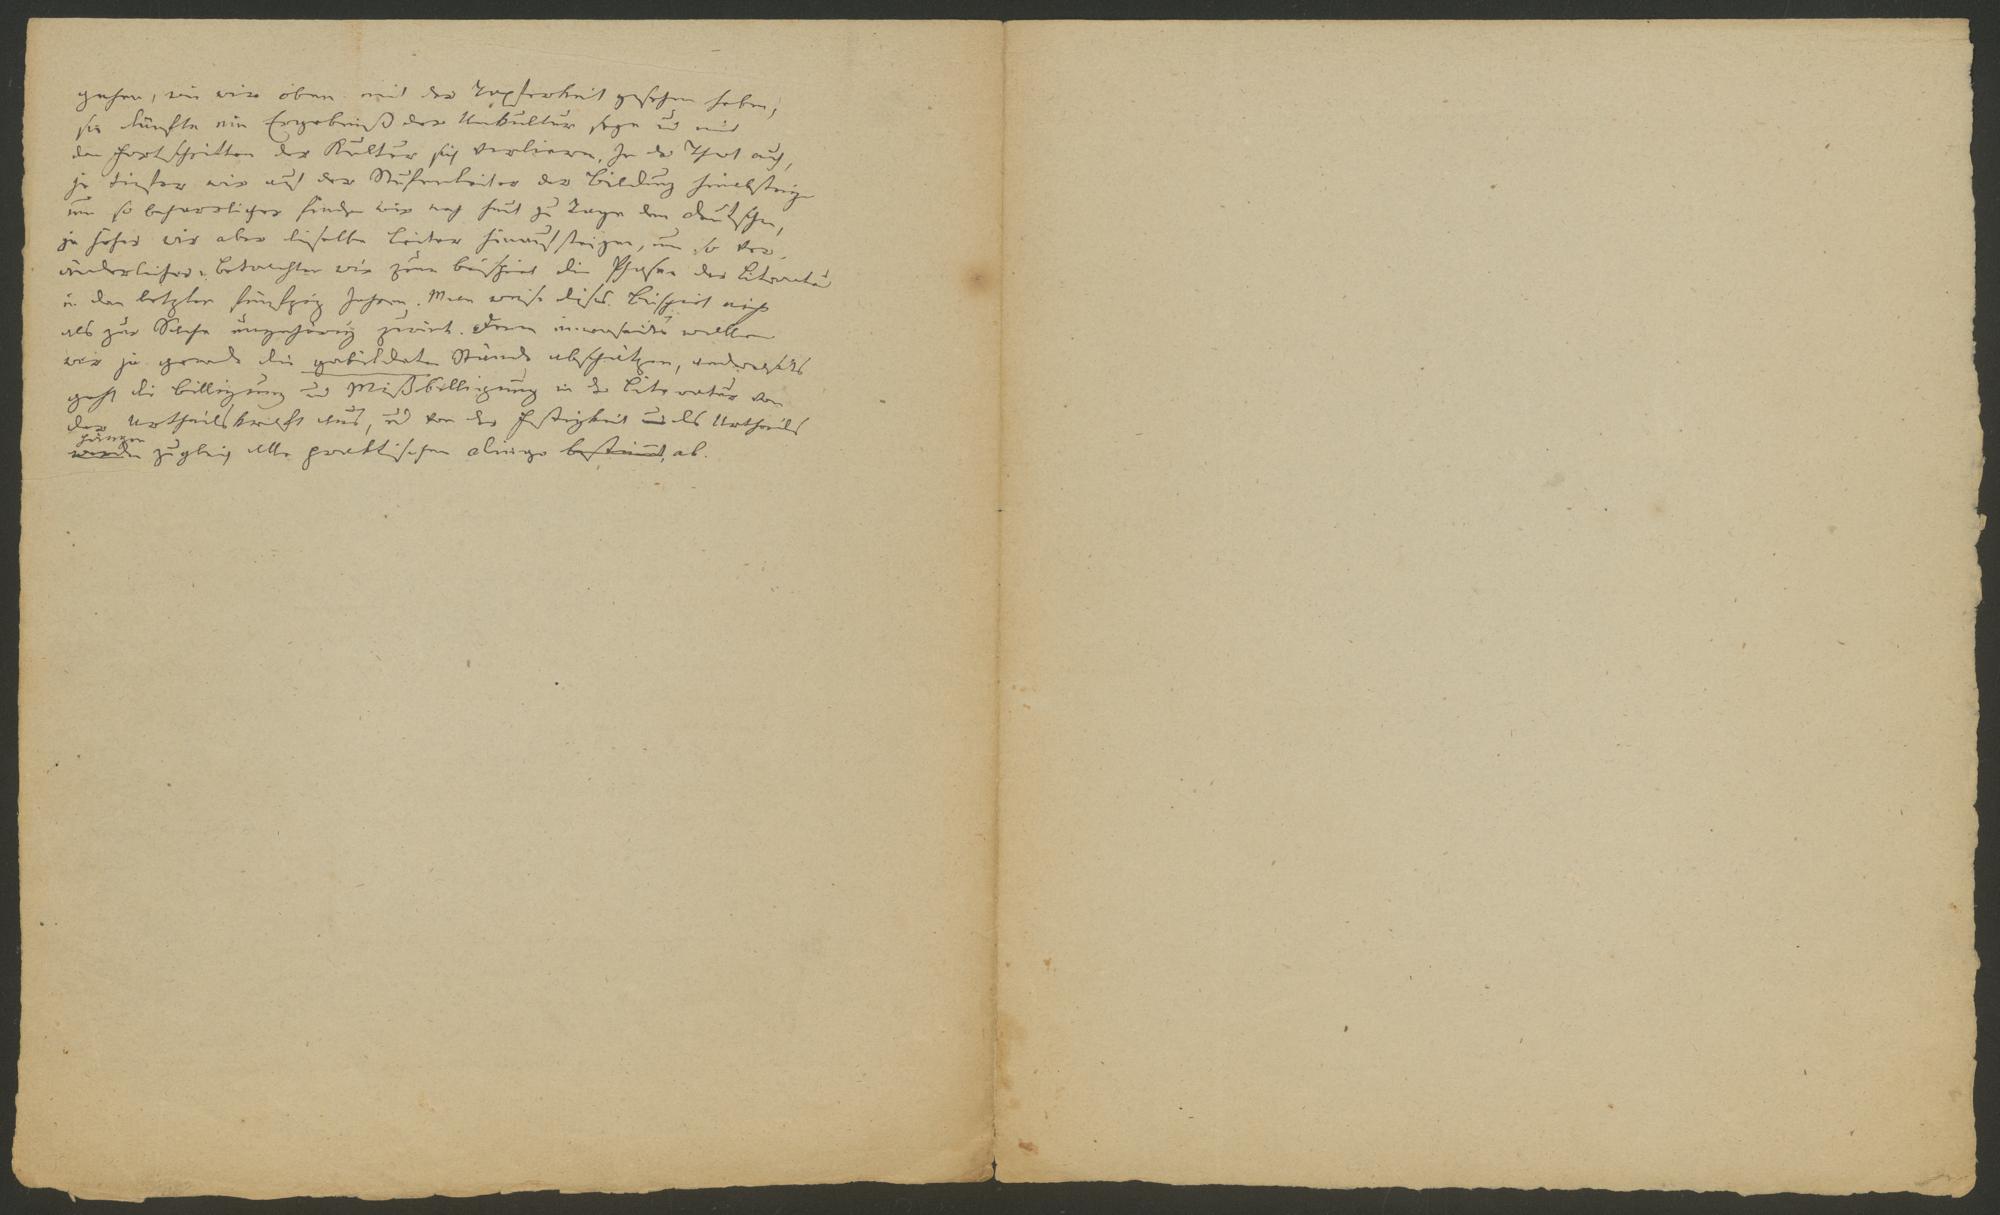 gehen, wie wir oben mit der Tapferkeit gesehen haben,
sie dürfte ein Ergebniß der Unkultur seyn und mit
den Fortschritten der Kultur sich verlieren. In der That auch,
je tiefer wir auf der Stufenleiter der Bildung hinabsteigen
um so beharrlicher finden wir noch heut zu Tage den Deutschen,
je höher wir aber dieselbe Leiter hinaufsteigen, um so ver-
änderlicher. Betrachten wir zum Beispiel die Phasen der Literatur
in den letzten fünfzig Jahren. Man weise dieses Beispiel nicht
als zur Sache ungehörig zurück. Denn einerseits wollen
wir ja gerade die gebildeten Stände abschätzen, anderseits
geht die Billigung und Mißbilligung in der Literatur von
der Urtheilskraft aus, und von der Festigkeit des Urtheils
hängen
werden zugleich alle praktischen Dinge bestimmt, ab.